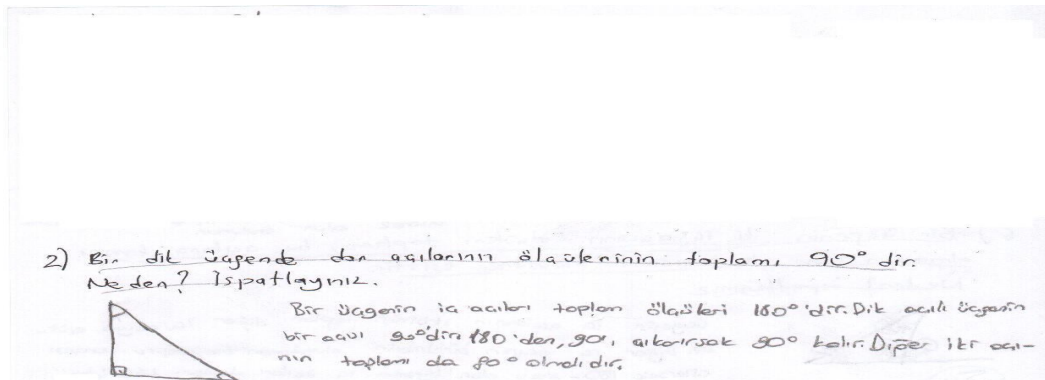 2) Bir dik üçgende dar açılarının ölçülerinin toplamı 90° dir.
Neden? İspatlayınız.
Bir üçgenin iç açıları toplam ölçüleri 180°'dir. Dik açılı üçgenin
bir açısı 90°'dir. 180'den, 90'ı, çıkarırsak 90° kalır. Diğer iki açı-
nın toplamı da 90° olmalıdır.